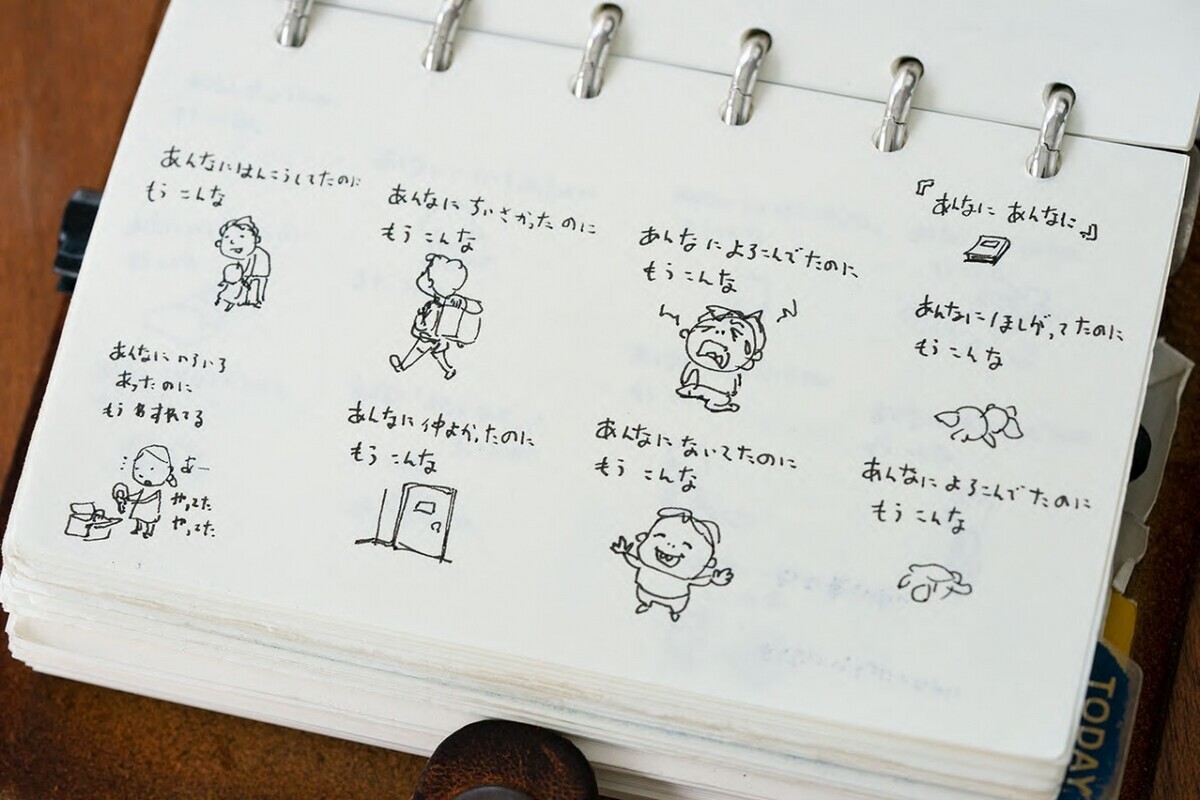 『あんなに あんなに。』
あんなに ほしがってたのに
もう こんな
あんなに よろこんでたのに
もう こんな
あんなに よろこんでたのに
もう こんな
あんなに ないてたのに
もう こんな
あんなに ちいさかったのに
もう こんな
あんなに 仲よかったのに
もう こんな
あんなにはんこうしてたのに
もう こんな
あんなに いろいろ
あったのに
もう わすれてる
あー
やってた
やってた
TODAY